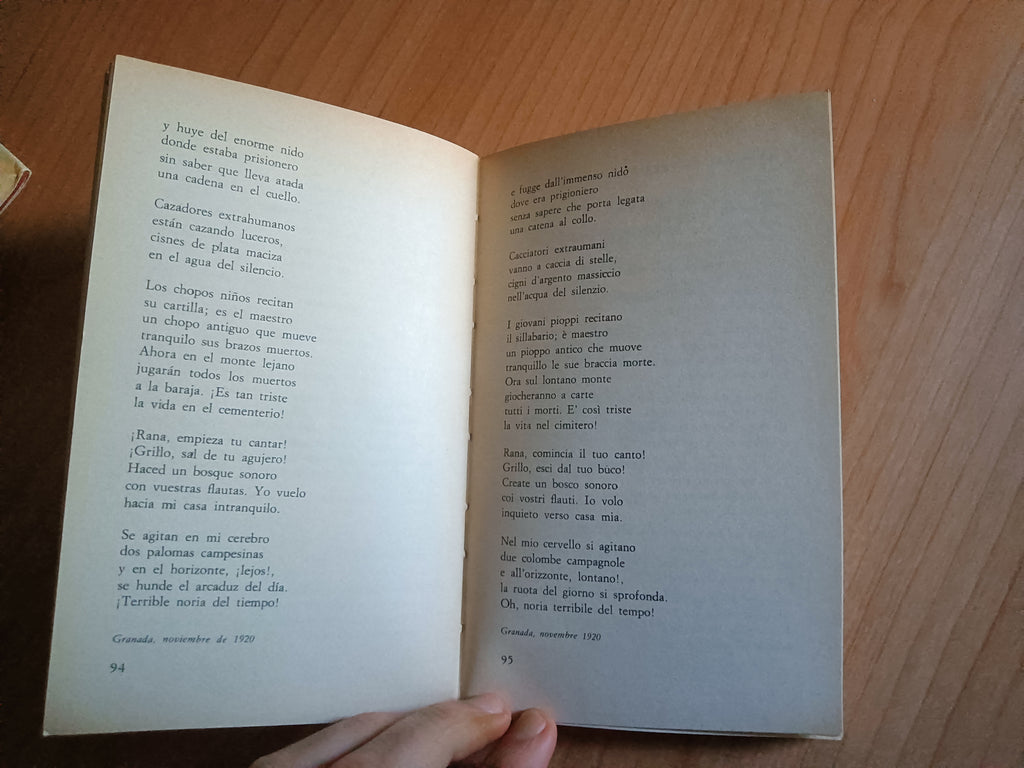 y huye del enorme nido
donde estaba prisionero
sin saber que lleva atada
una cadena en el cuello.
Cazadores extrahumanos
están cazando luceros,
cisnes de plata maciza
en el agua del silencio.
Los chopos niños recitan
su cartilla; es el maestro
un chopo antiguo que mueve
tranquilo sus brazos muertos.
Ahora en el monte lejano
jugarán todos los muertos
a la baraja. ¡Es tan triste
la vida en el cementerio!
¡Rana, empieza tu cantar!
¡Grillo, sal de tu agujero!
Haced un bosque sonoro
con vuestras flautas. Yo vuelo
hacia mi casa intranquilo.
Se agitan en mi cerebro
dos palomas campesinas
y en el horizonte, ¡lejos!,
se hunde el arcaduz del día.
¡Terrible noria del tiempo!
Granada, noviembre de 1920
94
e fugge dall'immenso nido
dove era prigioniero
senza sapere che porta legata
una catena al collo.
Cacciatori extraumani
vanno a caccia di stelle,
cigni d'argento massiccio
nell'acqua del silenzio.
I giovani pioppi recitano
il sillabario; è maestro
un pioppo antico che muove
tranquillo le sue braccia morte.
Ora sul lontano monte
giocheranno a carte
tutti i morti. E' così triste
la vita nel cimitero!
Rana, comincia il tuo canto!
Grillo, esci dal tuo buco!
Create un bosco sonoro
coi vostri flauti. Io volo
inquieto verso casa mia.
Nel mio cervello si agitano
due colombe campagnole
e all'orizzonte, lontano!,
la ruota del giorno si sprofonda.
Oh, noria terribile del tempo!
Granada, novembre 1920
95